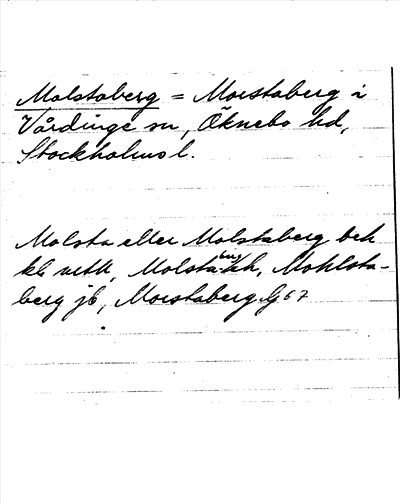 Malstaberg = Moestaberg i
Vårdinge sn, Öknebo hd,
Stockholms l.
Malsta eller Malstaberg beh
kb, Malstaberg, Mohlsta-
berg jb, Moestaberg G 67